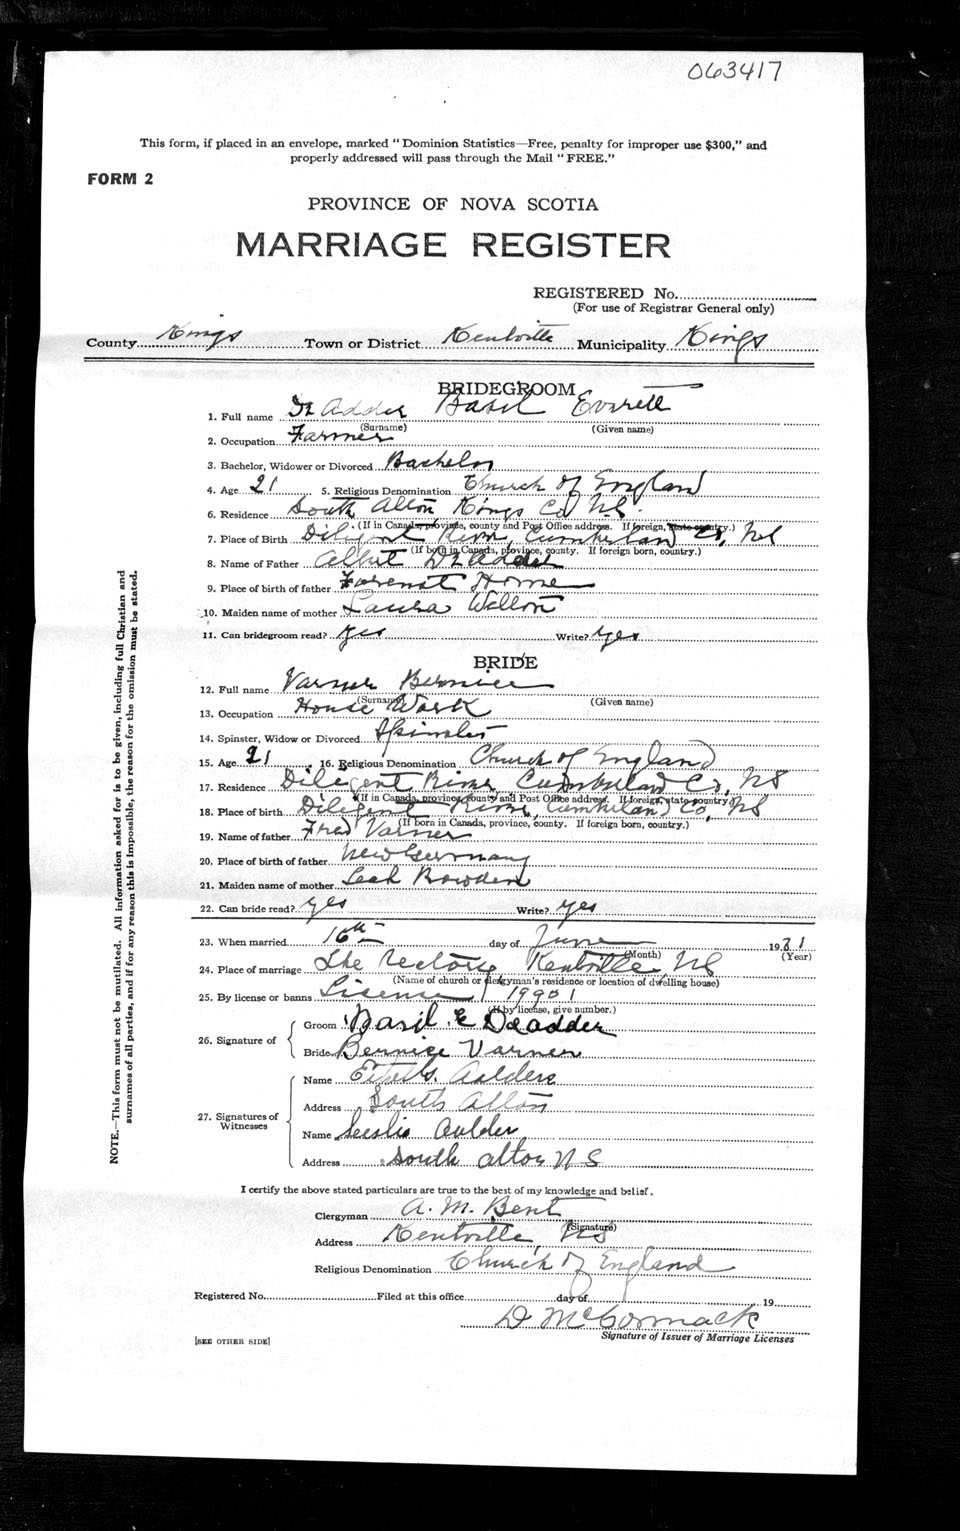 063417
This form, if placed in an envelope, marked "Dominion Statistics—Free, penalty for improper use $300," and
properly addressed will pass through the Mail "FREE."
FORM 2
PROVINCE OF NOVA SCOTIA
MARRIAGE REGISTER
REGISTERED No.
(For use of Registrar General only)
County Kings Town or District Kentville Municipality Kings
BRIDEGROOM
1. Full name Basil Everett
(Surname) (Given name)
2. Occupation Farmer
3. Bachelor, Widower or Divorced Bachelor
4. Age 21 5. Religious Denomination Church of England
6. Residence South Alton Kings Co NS.
(If in Canada, province, county and Post Office address. If foreign, state country.)
7. Place of Birth Diligent River, Cumberland Co, NS
(If born in Canada, province, county. If foreign born, country.)
8. Name of Father Albert
9. Place of birth of father Home
10. Maiden name of mother Laura
11. Can bridegroom read? yes Write? yes
BRIDE
12. Full name Varner Bernice
(Surname) (Given name)
13. Occupation House Work
14. Spinster, Widow or Divorced Spinster
15. Age 21 16. Religious Denomination Church of England
17. Residence Diligent River Cumberland Co, NS
(If in Canada, province, county and Post Office address. If foreign, state country.)
18. Place of birth Diligent River, Cumberland Co, NS
(If born in Canada, province, county. If foreign born, country.)
19. Name of father Fred Varner
20. Place of birth of father New Germany
21. Maiden name of mother Leah Bowden
22. Can bride read? yes Write? yes
23. When married 16th day of June 1931
(Month) (Year)
24. Place of marriage The Rectory Kentville, NS
(Name of church or clergyman's residence or location of dwelling house)
25. By license or banns License 19901
(If by license, give number.)
26. Signature of
Groom Basil E Deadder
Bride Bernice Varner
27. Signatures of
Witnesses
Name Aalders
Address South Alton
Name Leslie Aalder
Address South Alton NS
I certify the above stated particulars are true to the best of my knowledge and belief.
Clergyman A. M. Bent
(Signature)
Address Kentville, NS
Religious Denomination Church of England
Registered No. Filed at this office day of 19
D McCormack
Signature of Issuer of Marriage Licenses
[SEE OTHER SIDE]
NOTE.—This form must not be mutilated. All information asked for is to be given, including full Christian and
surnames of all parties, and if for any reason this is impossible, the reason for the omission must be stated.